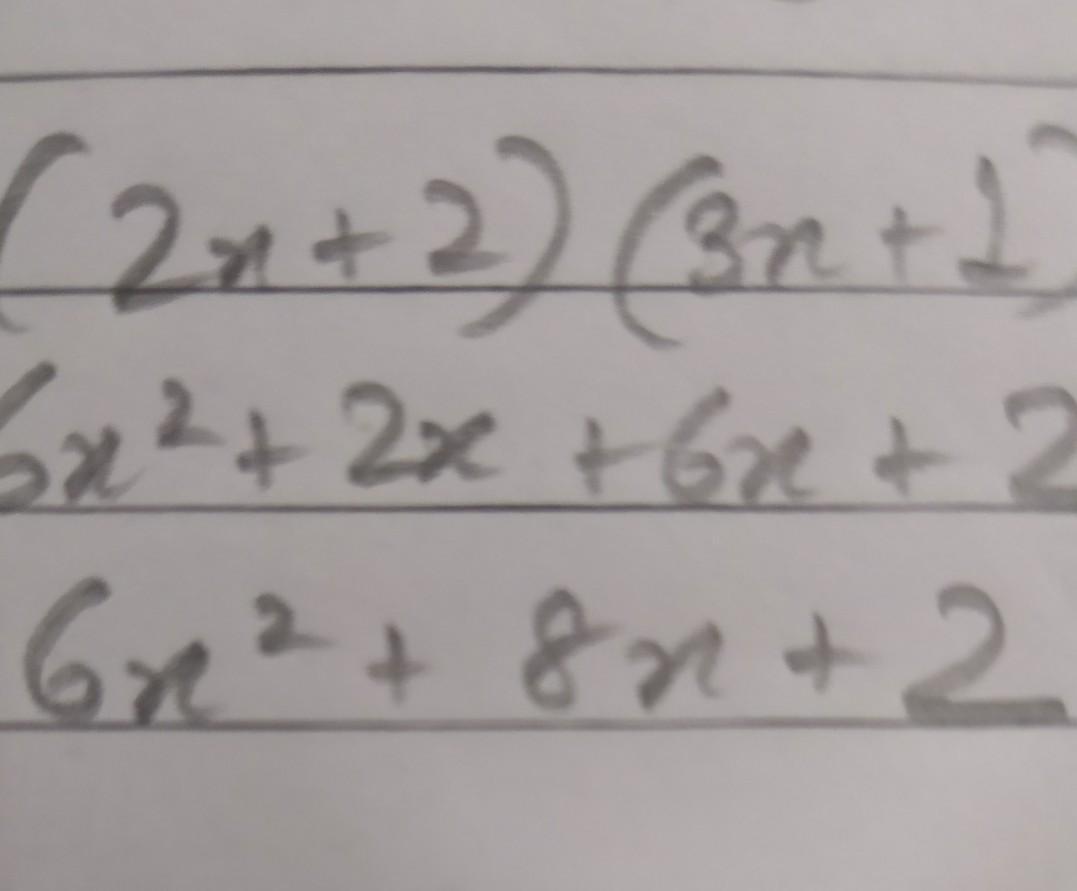 (2x+2)(3x+1)
6x²+2x+6x+2
6x²+8x+2